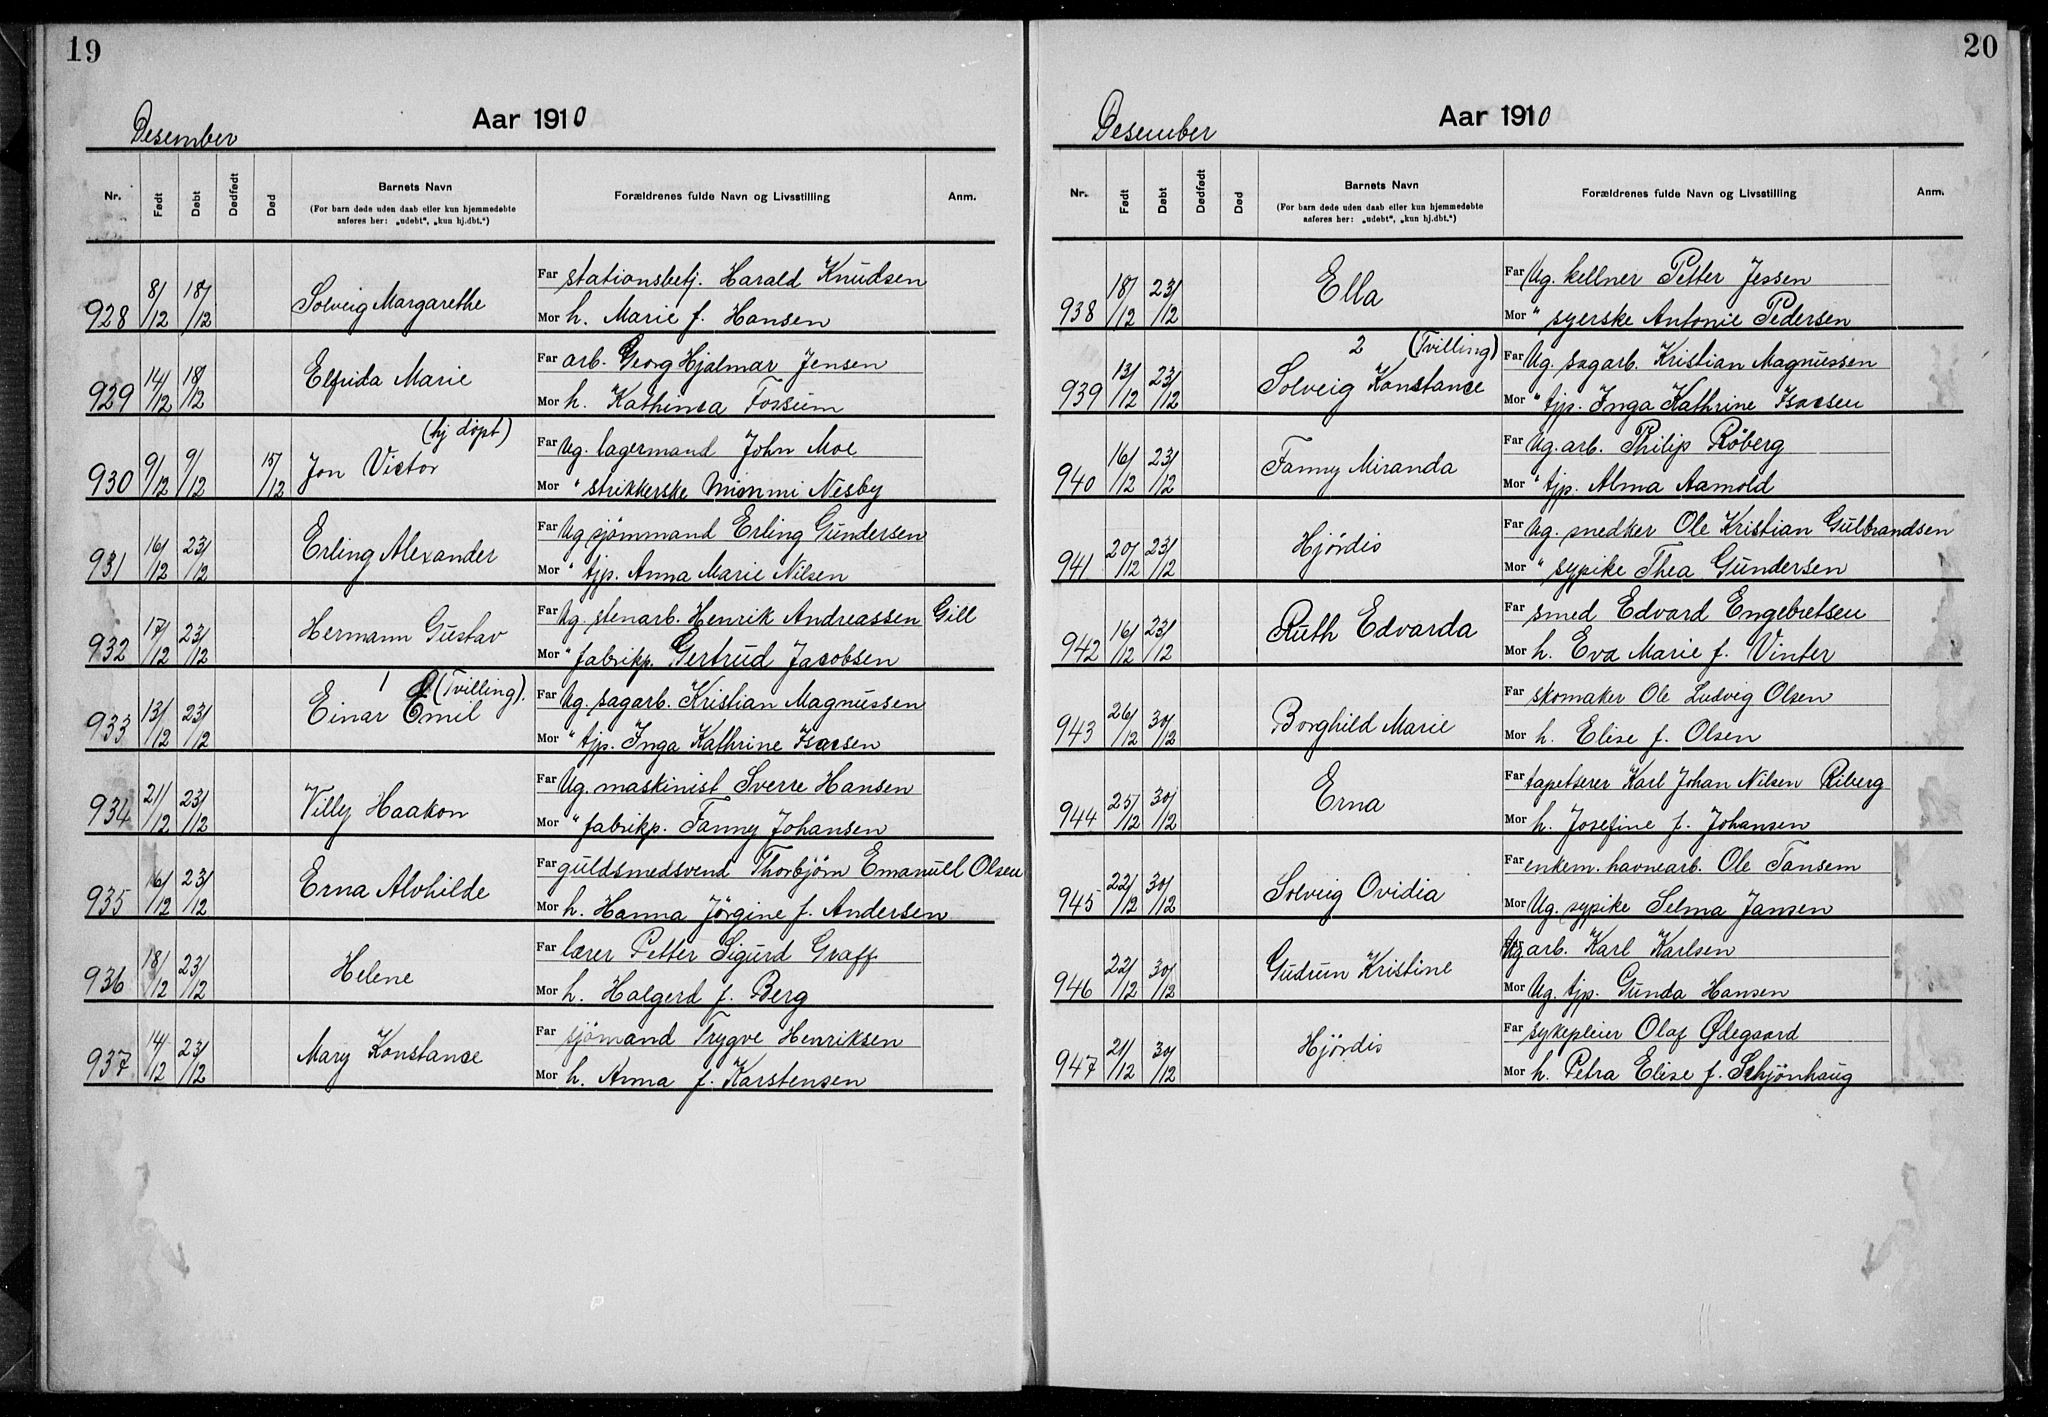 19
Desember
Aar 1910
Nr.
Født
Døbt
Dødfødt
Død
Barnets Navn
(For barn døde uden daab eller kun hjemmedøbte
anføres her: „udøbt“, „kun hj.dbt.“)
Forældrenes fulde Navn og Livsstilling
Anm.
928 8/12 18/12 Solveig Margarethe
Far stationsbetj. Harald Knudsen
Mor h. Marie f. Hansen
929 14/12 18/12 Elfrida Marie
Far arb. Georg Hjalmar Jensen
Mor h. Kathinca Fossum
(hj døpt)
930 9/12 9/12 15/12 Jon Victor
Far Ug. lagermand John Moe
Mor " strikkerske Mimmi Nesby
931 16/12 23/12 Erling Alexander
Far Ug sjømmand Erling Gundersen
Mor " tjp. Anna Marie Nilsen
932 17/12 23/12 Hermann Gustav
Far Ug. stenarb. Henrik Andreassen Gill
Mor " fabrikp. Gertrud Jacobsen
1 (Tvilling).
933 13/12 23/12 Einar Emil
Far Ug. sagarb. Kristian Magnussen
Mor " tjp. Inga Kathrine Isacsen
934 21/12 23/12 Villy Haakon
Far Ug. maskinist Sverre Hansen
Mor " fabrikp. Fanny Johansen
935 16/12 23/12 Erna Alvhilde
Far guldsmedsvend Thorbjørn Emanuell Olsen
Mor h. Hanna Jørgine f. Andersen
936 18/12 23/12 Helene
Far lærer Petter Sigurd Graff
Mor h. Halgerd f. Berg
937 14/12 23/12 Mary Konstance
Far sjømand Trygve Henriksen
Mor h. Anna f. Karstensen
20
Desember
Aar 1910
Nr.
Født
Døbt
Dødfødt
Død
Barnets Navn
(For barn døde uden daab eller kun hjemmedøbte
anføres her: „udøbt“, „kun hj.dbt.“)
Forældrenes fulde Navn og Livsstilling
Anm.
938 18/12 23/12 Ella
Far Ug. kellner Petter Jessen
Mor " syerske Antonie Pedersen
2 (Tvilling)
939 13/12 23/12 Solveig Konstance
Far Ug. sagarb. Kristian Magnussen
Mor " tjp. Inga Kathrine Isacsen
940 16/12 23/12 Fanny Miranda
Far Ug. arb. Philip Røberg
Mor " tjp. Alma Aamold
941 20/12 23/12 Hjørdis
Far Ug. snedker Ole Kristian Gulbrandsen
Mor " sypike Thea Gundersen
942 16/12 23/12 Ruth Edvarda
Far smed Edvard Engebretsen
Mor h. Eva Marie f. Vinter
943 26/12 30/12 Borghild Marie
Far skomaker Ole Ludvig Olsen
Mor h. Elise f. Olsen
944 25/12 30/12 Erna
Far tapetserer Karl Johan Nilsen Riberg
Mor h. Josefine f. Johansen
945 22/12 30/12 Solveig Ovidia
Far enkem. havnearb. Ole Tansem
Mor Ug. sypike Selma Jansen
946 22/12 30/12 Gudrun Kristine
Ug arb. Karl Karlsen
Mor Ug. tjp. Gunda Hansen
947 21/12 30/12 Hjørdis
Far sykepleier Olaf Ødegaard
Mor h. Petra Elise f. Schjønhaug